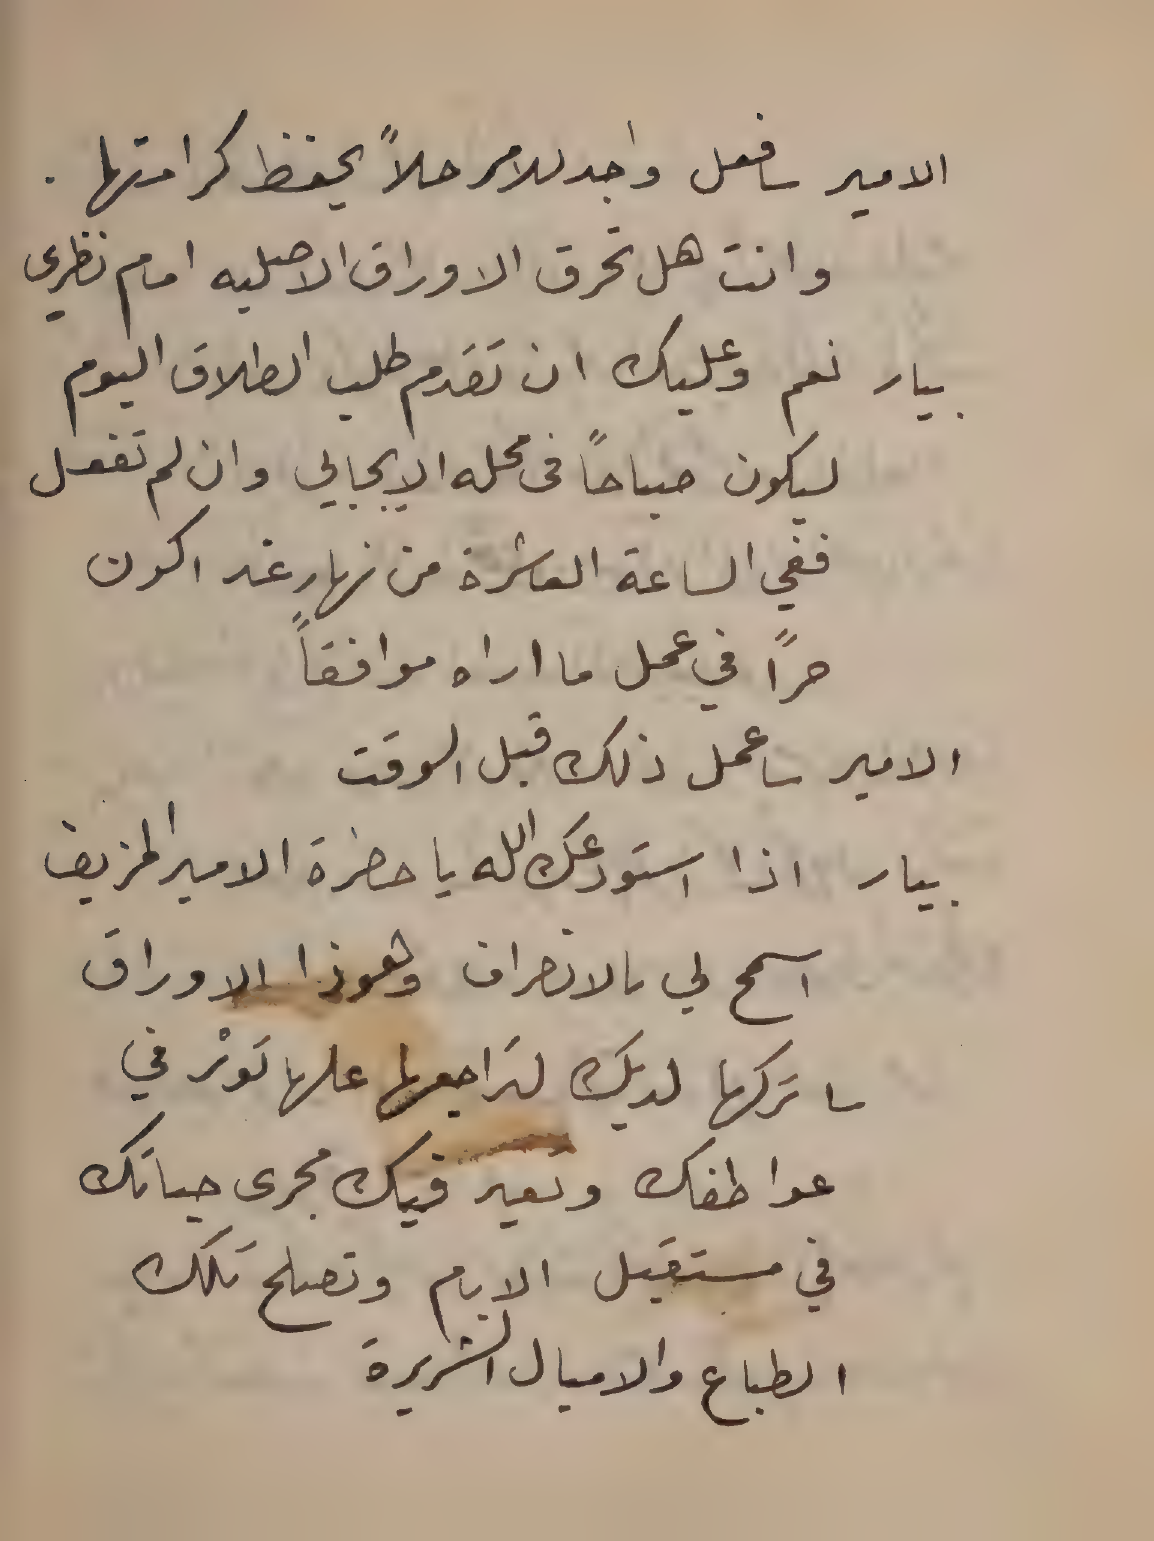 الامير سافعل واجد للامر حلاً يحفظ كرامتها .
وانت هل تحرق الاوراق الاصليه امام نظري
بيار نعم وعليك ان تقدم طلب الطلاق اليوم
ليكون صباحاً في محله الايجابي وان لم تفعل
ففي الساعة العاشرة من نهار غد اكون
حراً في عمل ما اراه موافقاً
الامير ساعمل ذلك قبل الوقت
بيار اذا استودعك الله يا حضرة الامير المزيف
اسمح لي بالانصراف وهوذا الاوراق
ساتركها لديك لتراجعها علها توثر في
عواطفك وتغير فيك مجرى حياتك
في مستقبل الايام وتصلح تلك
الطباع والاميال الشريرة